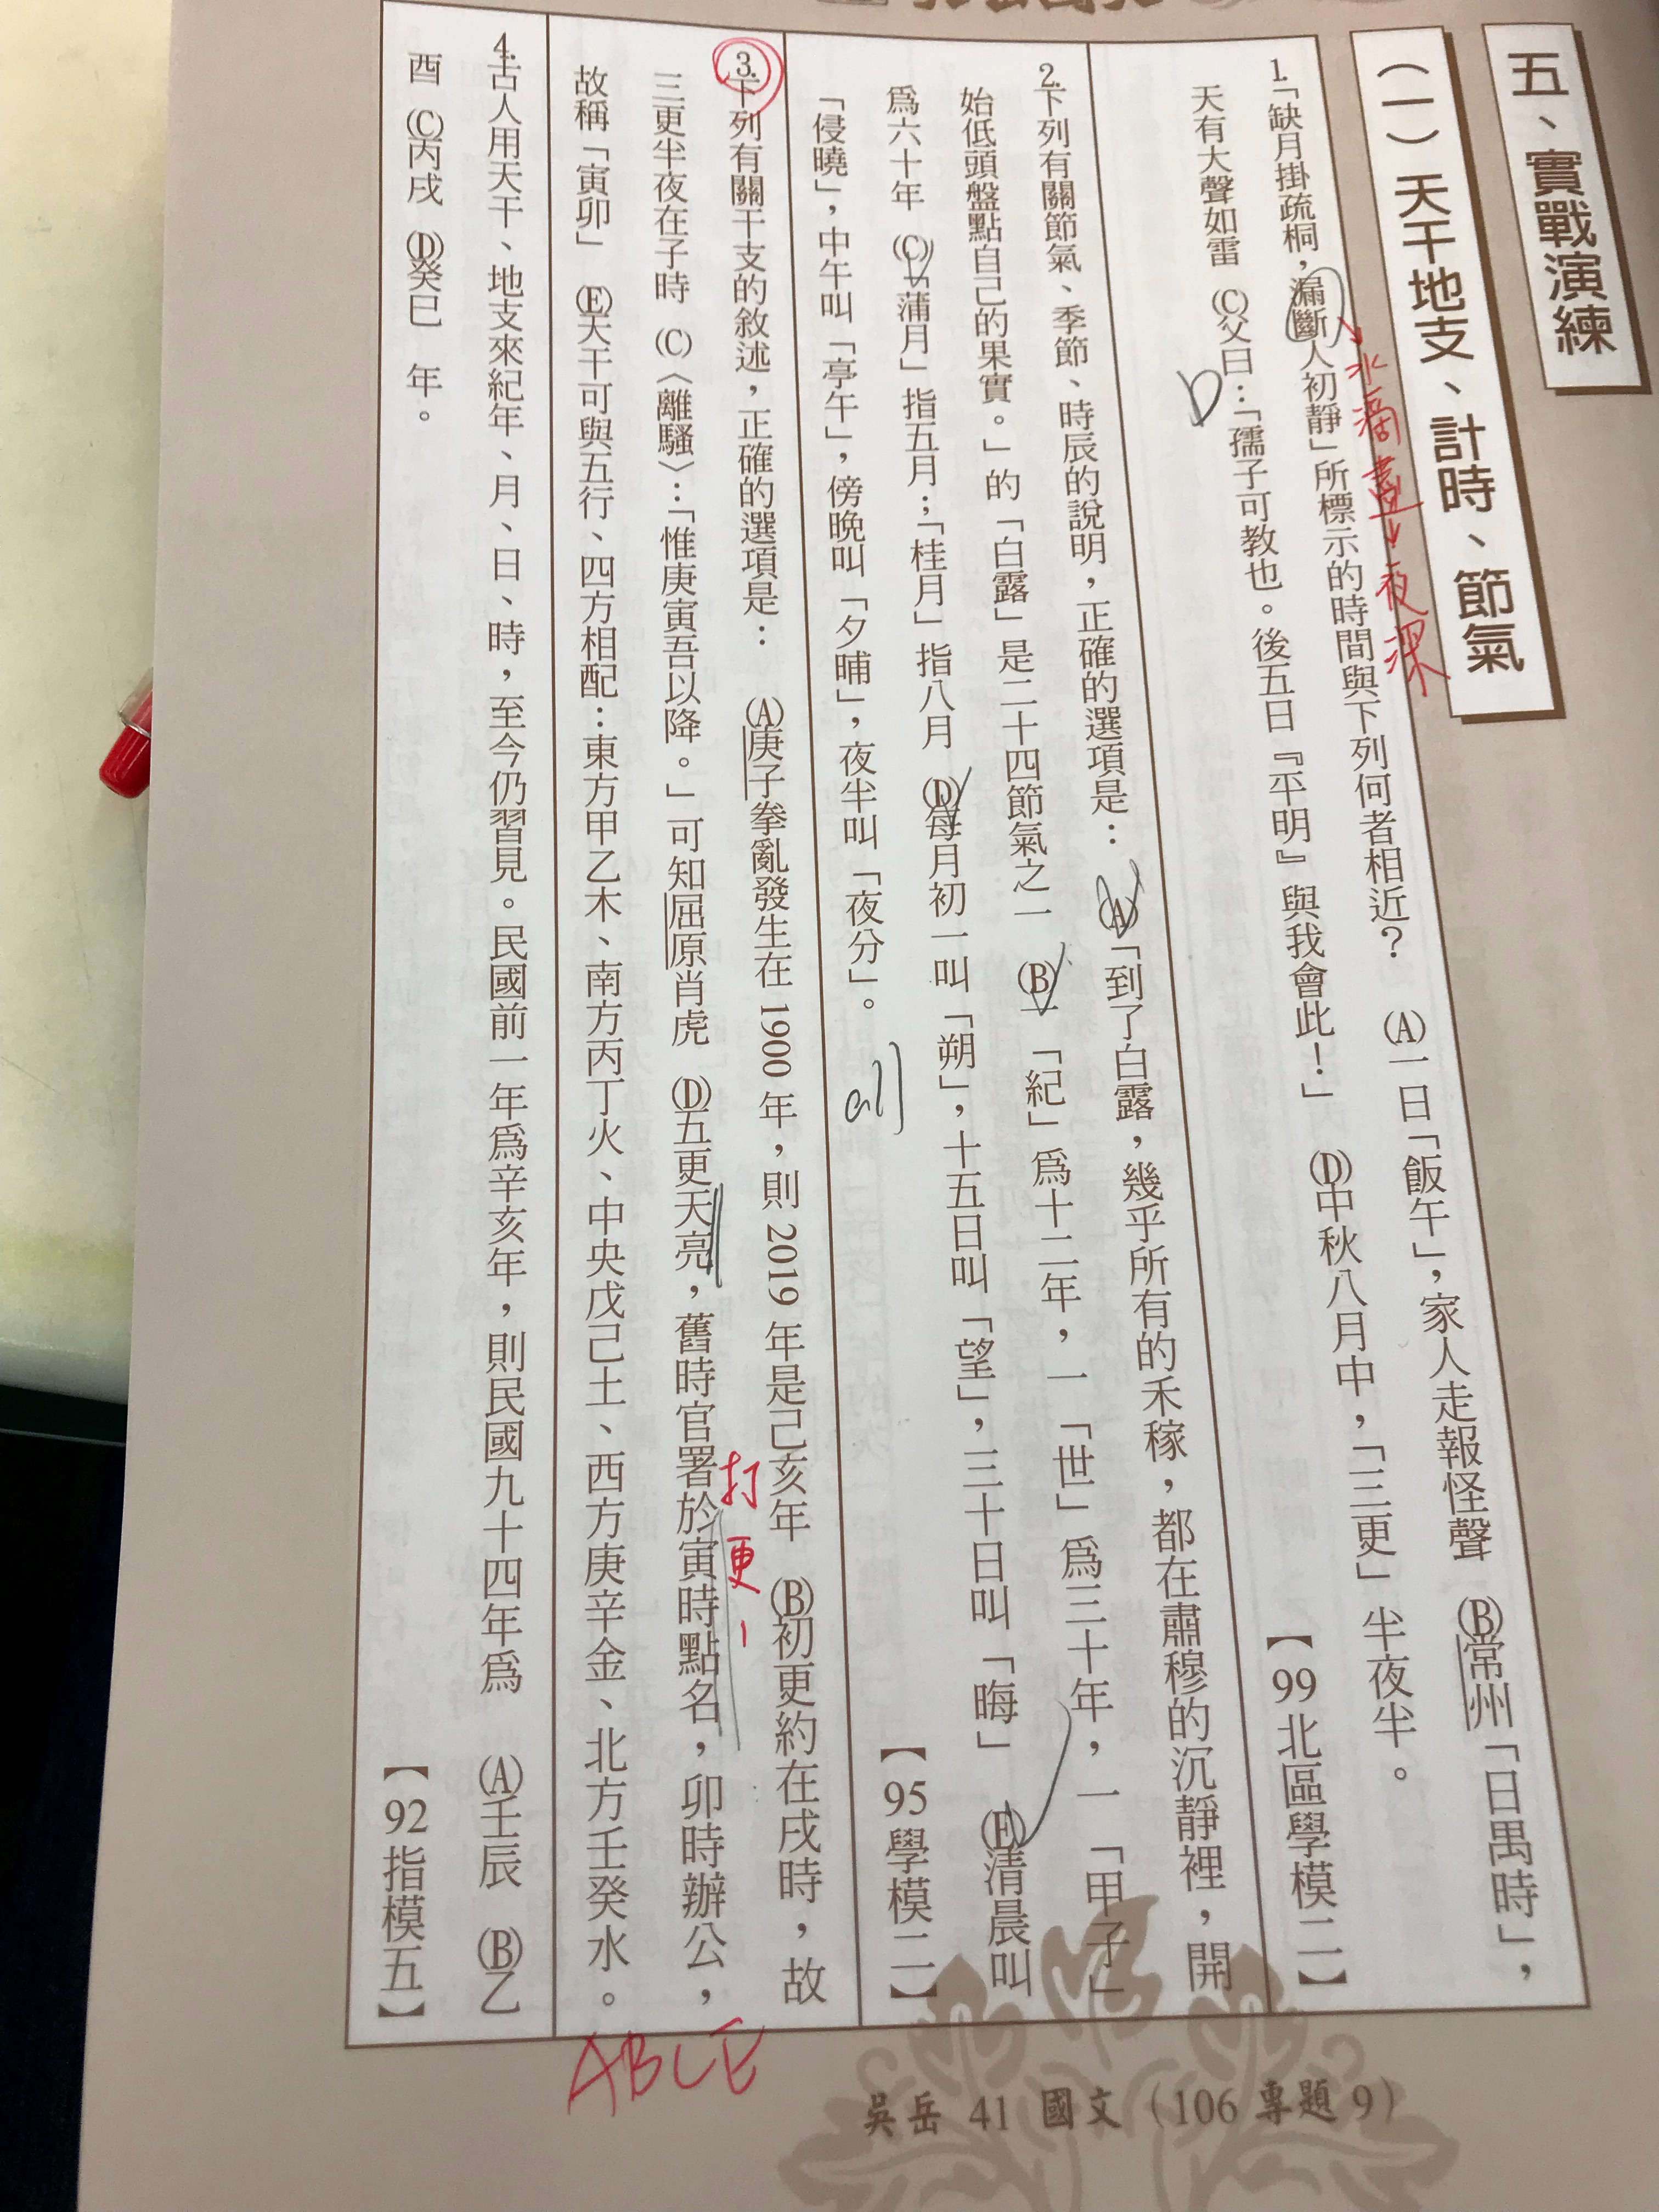 五、實戰演練
(一)天干地支、計時、節氣
水滴盡→夜深
1.「缺月掛疏桐,漏斷人初靜」所標示的時間與下列何者相近? (A)一日「飯午」,家人走報怪聲 (B)常州「日禺時」,
天有大聲如雷 (C)父曰:「孺子可教也。後五日『平明』與我會此!」 (D)中秋八月中,「三更」半夜半。
D
【99北區學模二】
2.下列有關節氣、季節、時辰的說明,正確的選項是: (A)「到了白露,幾乎所有的禾稼,都在肅穆的沉靜裡,開
始低頭盤點自己的果實。」的「白露」是二十四節氣之一 (B)一「紀」為十二年,一「世」為三十年,一「甲子」
為六十年 (C)「蒲月」指五月;「桂月」指八月 (D)每月初一叫「朔」,十五日叫「望」,三十日叫「晦」 (E)清晨叫
「侵曉」,中午叫「亭午」,傍晚叫「夕晡」,夜半叫「夜分」。
all
【95學模二】
3.下列有關干支的敘述,正確的選項是: (A)庚子拳亂發生在1900年,則2019年是己亥年 (B)初更約在戌時,故
三更半夜在子時 (C)〈離騷〉:「惟庚寅吾以降。」可知屈原肖虎 (D)五更天亮,舊時官署於寅時點名,卯時辦公,
打更
故稱「寅卯」 (E)天干可與五行、四方相配:東方甲乙木、南方丙丁火、中央戊己土、西方庚辛金、北方壬癸水。
ABCE
4.古人用天干、地支來紀年、月、日、時,至今仍習見。民國前一年為辛亥年,則民國九十四年為 (A)壬辰 (B)乙
酉 (C)丙戌 (D)癸巳 年。
【92指模五】
吳岳 41 國文(106專題9)